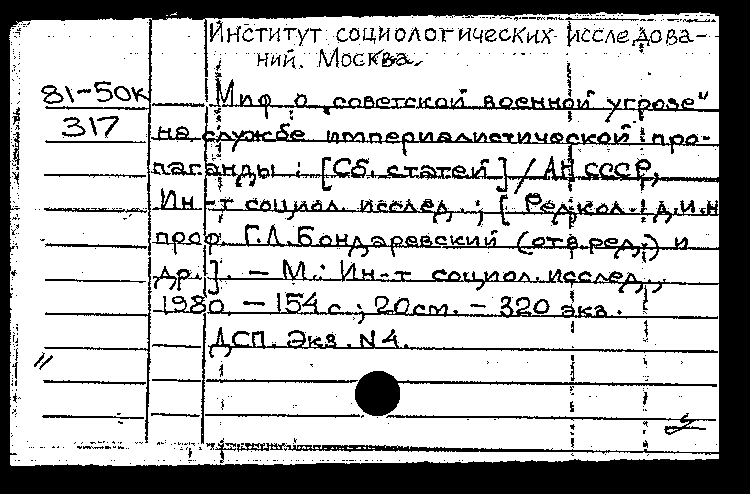 Институт социологических исследова-
ний. Москва.
81-50к
Миф о „советской военной угрозе"
317
на службе империалистической про-
паганды : [Сб. статей] / АН СССР,
Ин-т социол. исслед. ; [Редкол.: д.и.н
проф. Г.Л. Бондаревский (отв. ред.) и
др.]. - М.: Ин-т социол. исслед.,
1980. - 154 с.; 20см. - 320 экз.
ДСП. Экз. N4.